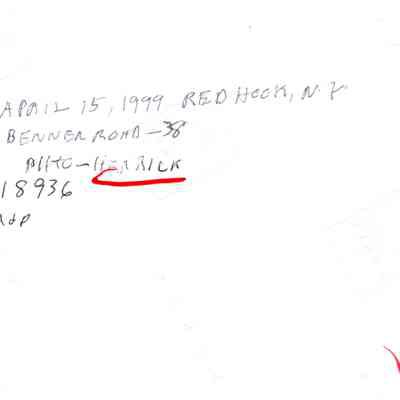 APRIL 15, 1999 RED HOOK, N.Y.
BENNER ROAD - 38
PHTO - HERRICK
18936